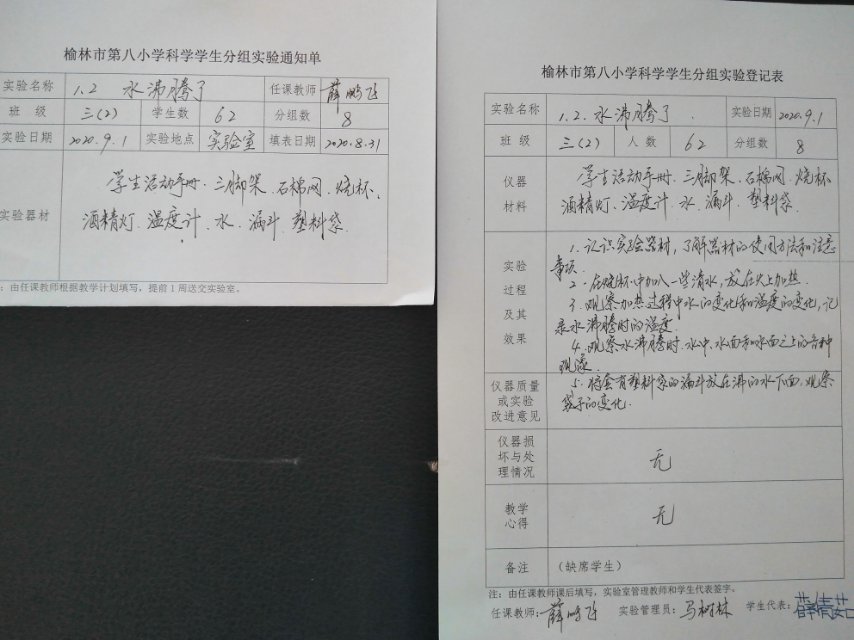 榆林市第八小学科学学生分组实验通知单
实验名称 1.2 水沸腾了 任课教师 薛鹏飞
班 级 三(2) 学生数 62 分组数 8
实验日期 2020.9.1 实验地点 实验室 填表日期 2020.8.31
学生活动手册、三脚架、石棉网、烧杯、
实验器材 酒精灯、温度计、水、漏斗、塑料袋
:由任课教师根据教学计划填写，提前1周送交实验室。
榆林市第八小学科学学生分组实验登记表
实验名称 1.2.水沸腾了. 实验日期 2020.9.1
班 级 三(2) 人 数 62 分组数 8
仪器 学生活动手册、三脚架、石棉网、烧杯
材料 酒精灯、温度计、水、漏斗、塑料袋
实验
过程
及其
效果
1.认识实验器材，了解器材的使用方法和注意
事项.
2.在烧杯中加入一些清水，放在火上加热.
3.观察加热过程中水的变化和温度的变化，记
录水沸腾时的温度.
4.观察水沸腾时.水中、水面和水面之上的各种
现象.
仪器质量
或实验
改进意见
5.将套有塑料袋的漏斗放在沸的水下面，观察
袋子的变化.
仪器损
坏与处
理情况
无
教学
心得
无
备注 (缺席学生)
注：由任课教师课后填写，实验室管理教师和学生代表签字。
任课教师:薛鹏飞 实验管理员:马树林 学生代表:薛倩茹